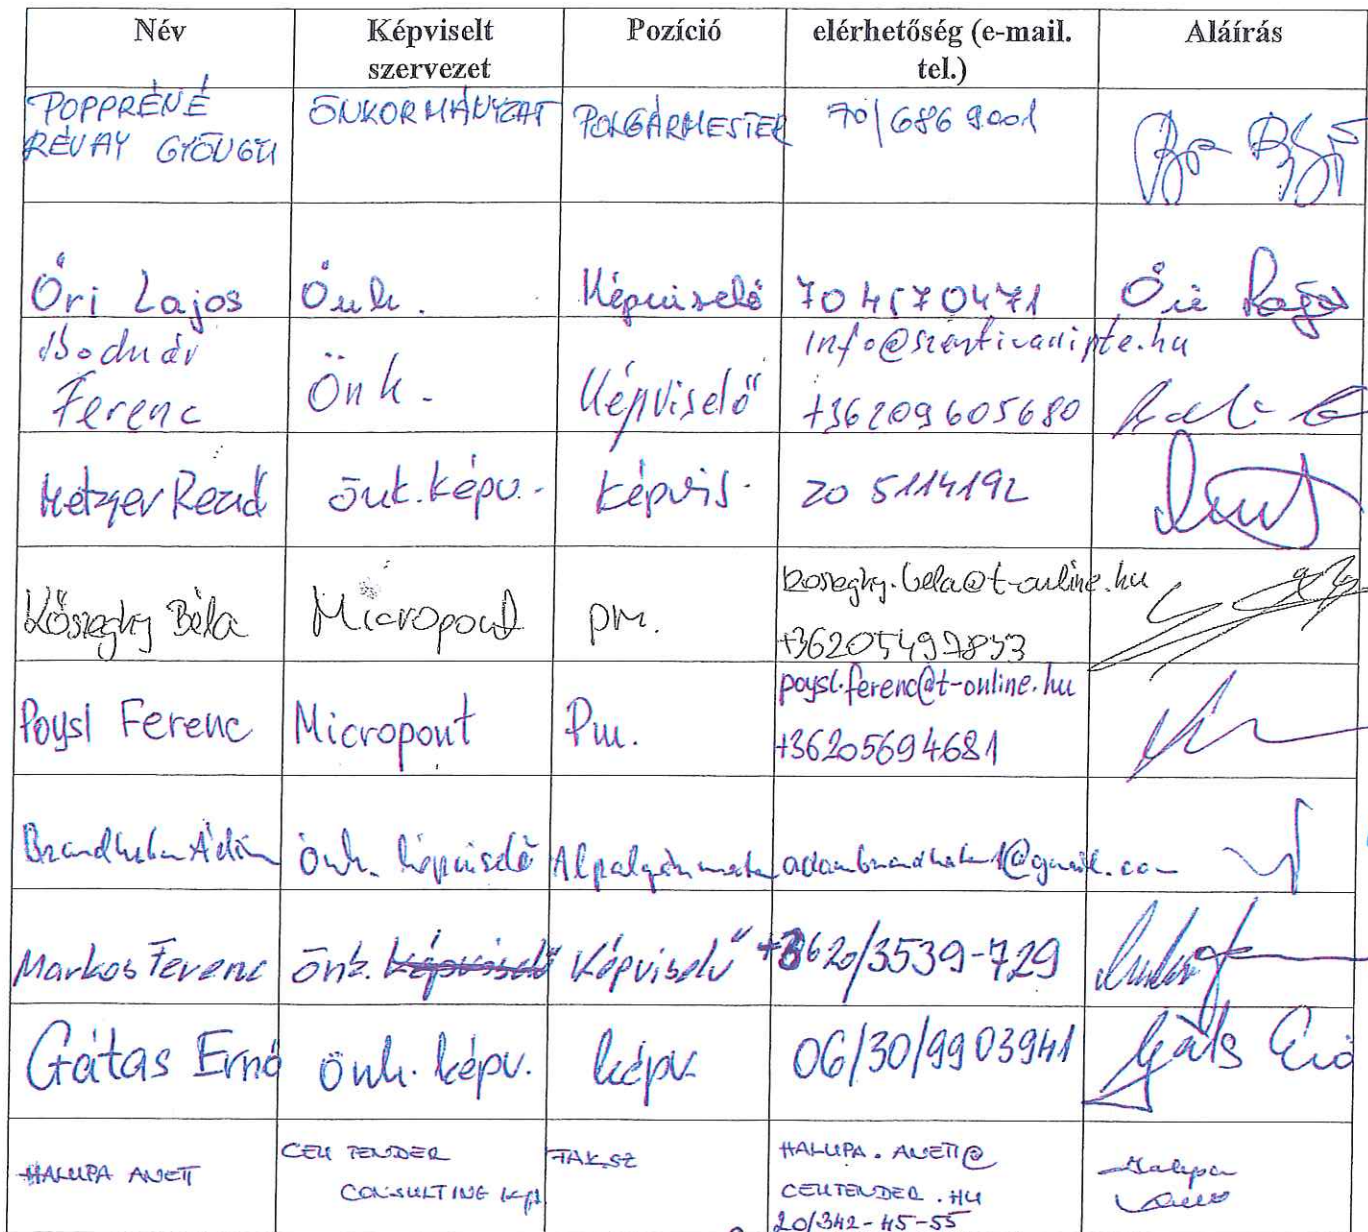 Név Képviselt szervezet Pozíció elérhetőség (e-mail. tel.) Aláírás
POPPRÉNÉ RÉVAY GYÖNGYI ÖNKORMÁNYZAT POLGÁRMESTER 70/686 9001
Őri Lajos Önk. Képviselő 70 4570471 Őri Lajos
Bodnár Ferenc Önk. Képviselő info@szentivanipte.hu +36209605680
Metzger Rezső önk. képv. - képvis. 20 5114192
Kőszeghy Béla Micropont pm. koszeghy.bela@t-online.hu +36205497833
Poysl Ferenc Micropont Pm. poysl.ferenc@t-online.hu +36205694681
Ádám önk. képviselő Alpolgármester
Markos Ferenc önk. képviselő Képviselő +3620/3539-729
Gátas Ernő önk. képv. képv. 06/30/9903941 Gátas Ernő
HALUPA ANETT CEU TENDER CONSULTING Kft TAK.SZ HALUPA.ANETT@CEUTENDER.HU 20/342-45-55 Halupa Anett